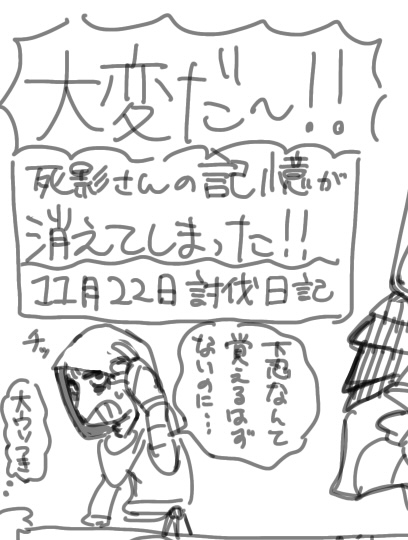 大変だ〜!!
死影さんの記憶が
消えてしまった!!
11月22日討伐日記
チッ
下忍なんて
覚えるはず
ないのに…
大ウソつき